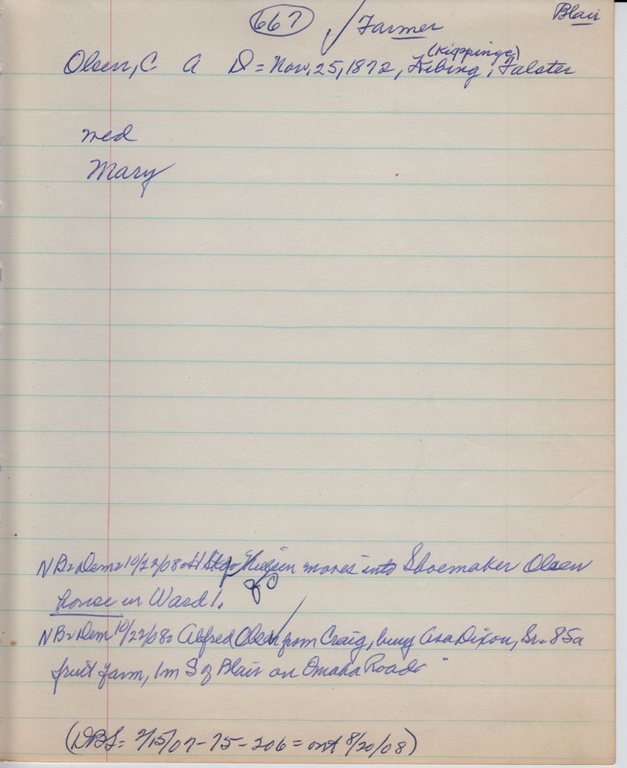 667 ✓ Farmer Blair
(Kippinge)
Olsen, C. A D = Nov, 25, 1872, , Falster
med
Mary
NB = Dem = 10/22/08 = H moves into Shoemaker Olsen
house in Ward 1.
NB = Dem 10/22/08 = Alfred Olsen from Craig, buy Asa Dixon, Sr. 85a
fruit farm, 1m S of Blair on Omaha Road"
(DBS = 2/15/07-75-206 = ont 8/20/08)